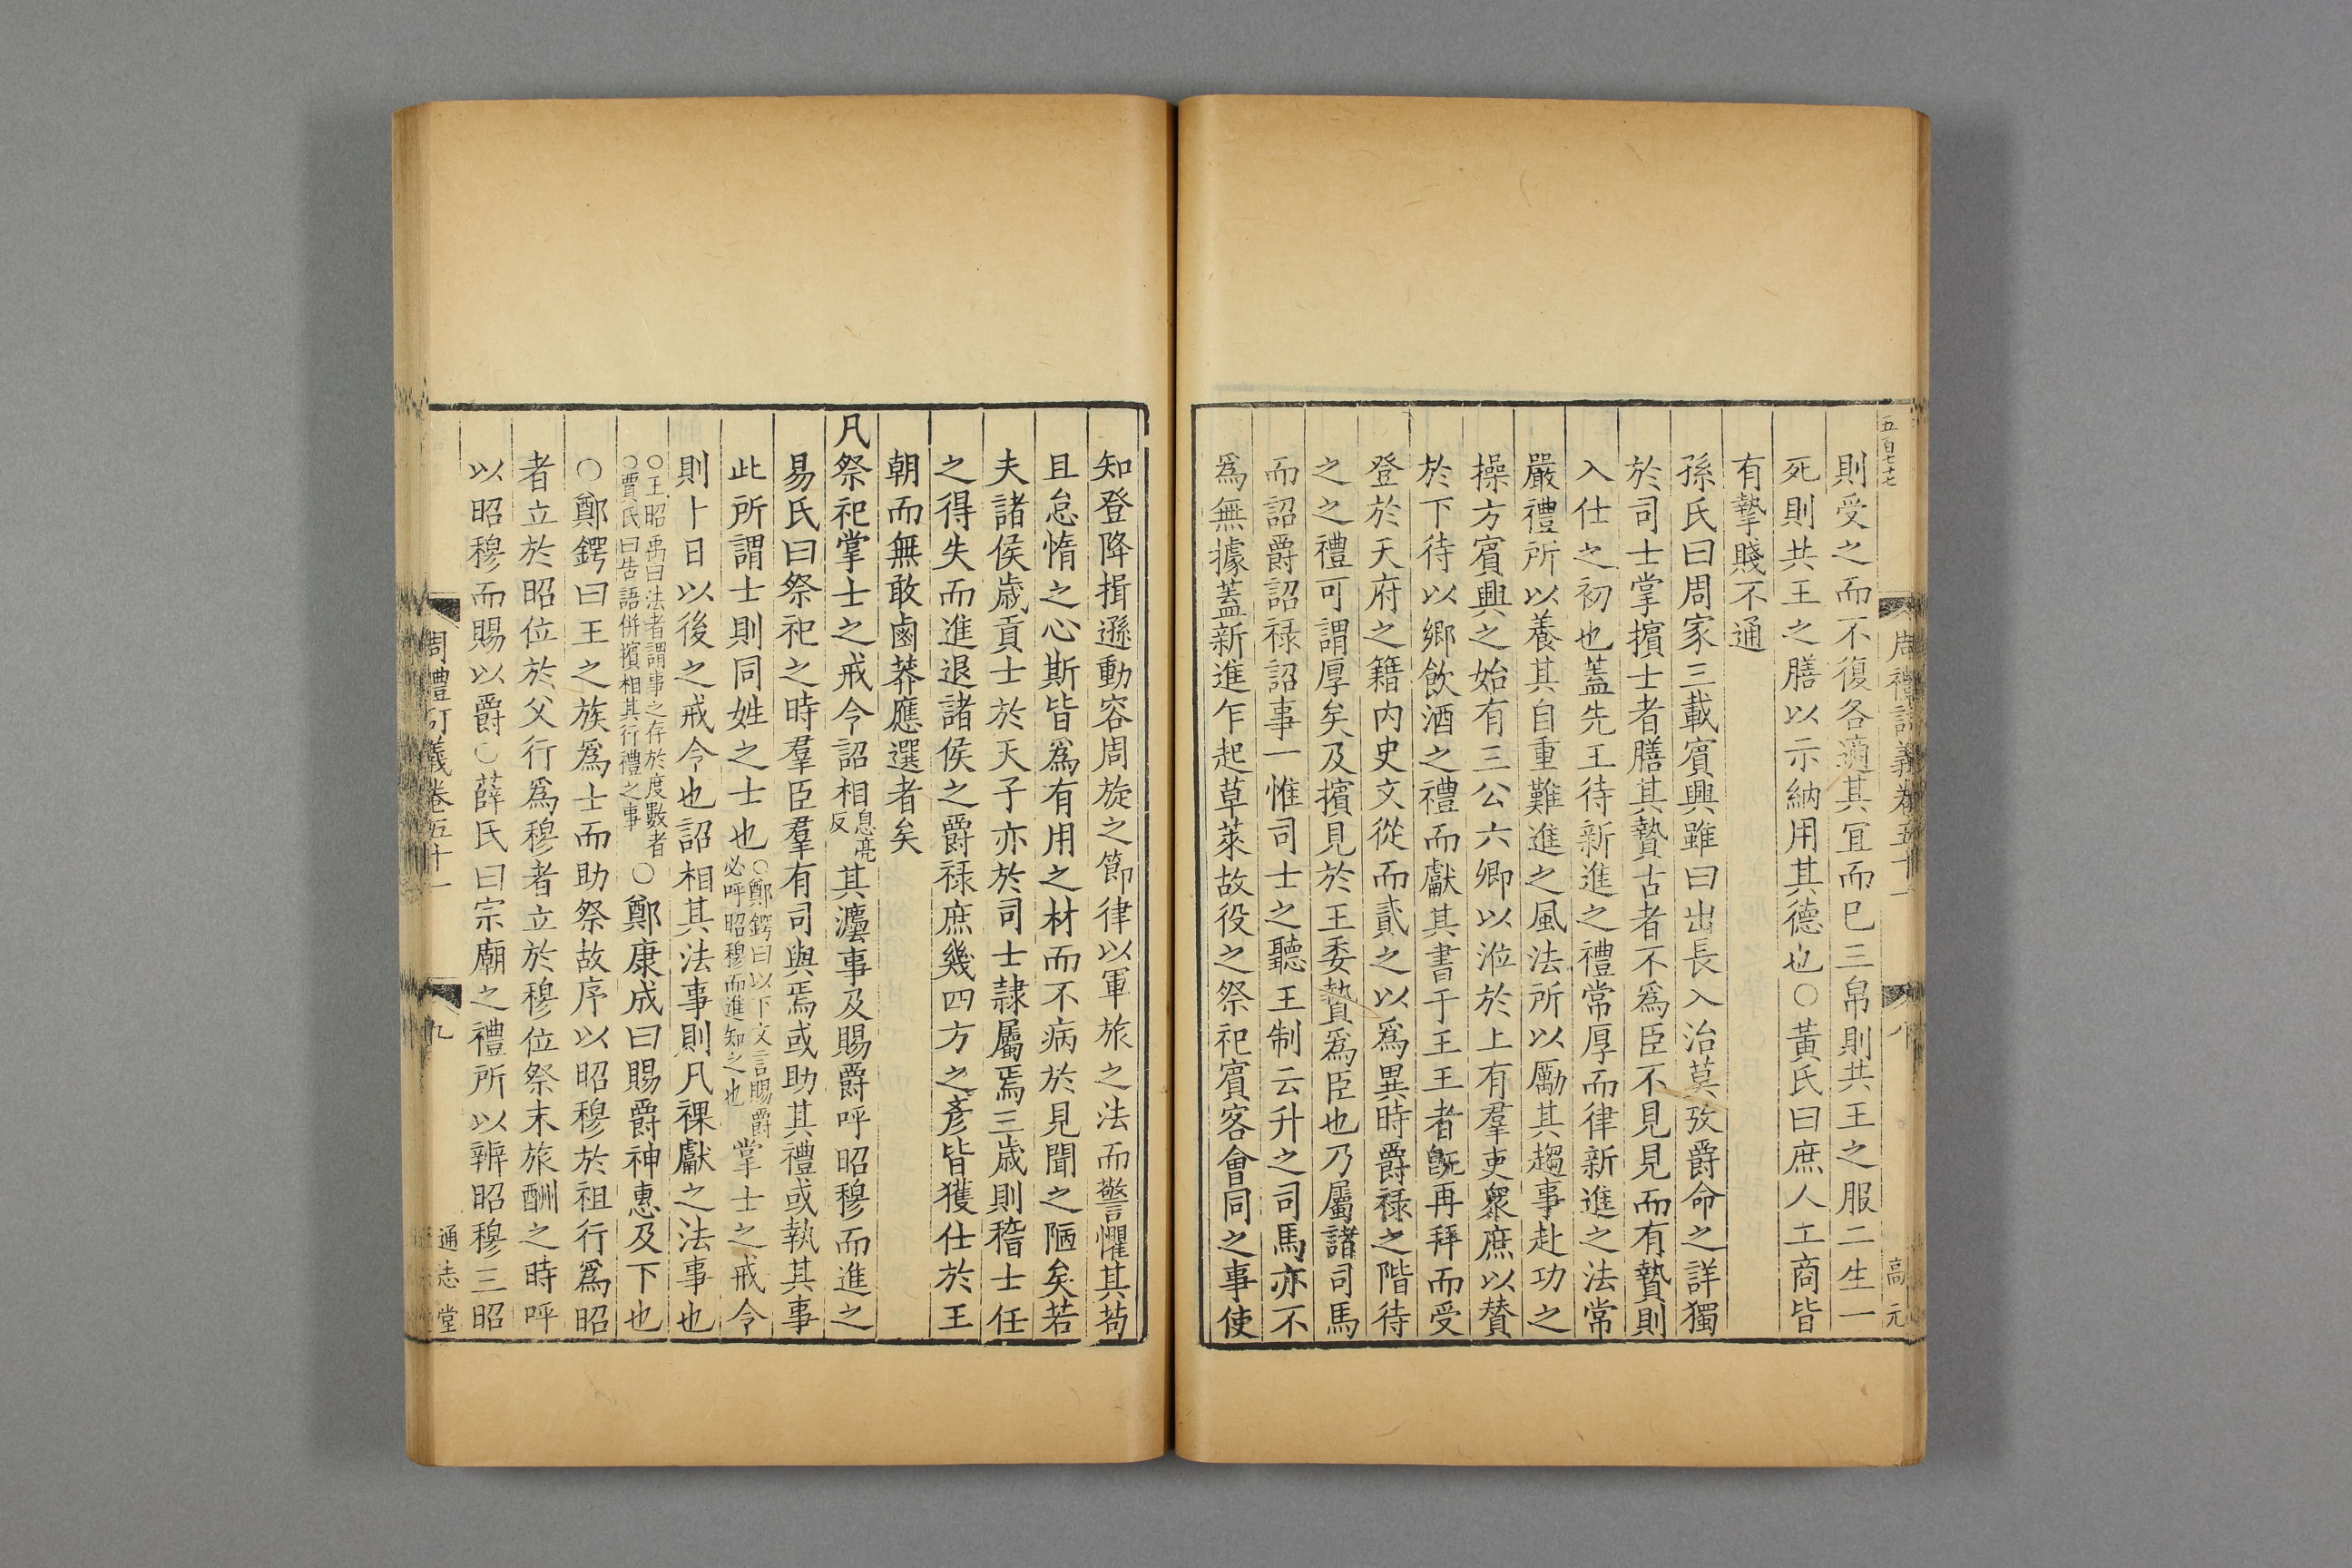 五百七十七
周禮訂義卷五十一
八
高元
則受之而不復各適其宜而巳三帛則共王之服二生一
死則共王之膳以示納用其德也○黃氏曰庶人工商皆
有摯賤不通
孫氏曰周家三載賓興雖曰出長入治莫攷爵命之詳獨
於司士掌擯士者膳其贄古者不爲臣不見見而有贄則
入仕之初也蓋先王待新進之禮常厚而律新進之法常
嚴禮所以養其自重難進之風法所以勵其趨事赴功之
操方賓興之始有三公六卿以涖於上有羣吏衆庶以賛
於下待以鄉飲酒之禮而獻其書于王王者旣再拜而受
登於天府之籍内史文從而貳之以爲異時爵祿之階待
之之禮可謂厚矣及擯見於王委贄爲臣也乃屬諸司馬
而詔爵詔祿詔事一惟司士之聽王制云升之司馬亦不
爲無據蓋新進乍起草萊故役之祭祀賓客會同之事使
知登降揖遜動容周旋之節律以軍旅之法而警懼其苟
且怠惰之心斯皆爲有用之材而不病於見聞之陋矣若
夫諸侯歲貢士於天子亦於司士隷屬焉三歲則稽士任
之得失而進退諸侯之爵祿庶幾四方之彥皆獲仕於王
朝而無敢鹵莽應選者矣
凡祭祀掌士之戒令詔相息亮反其灋事及賜爵呼昭穆而進之
易氏曰祭祀之時羣臣羣有司與焉或助其禮或執其事
此所謂士則同姓之士也○鄭鍔曰以下文言賜爵必呼昭穆而進知之也掌士之戒令
則卜日以後之戒令也詔相其法事則凡祼獻之法事也
○王昭禹曰法者謂事之存於度數者○賈氏曰告語併擯相其行禮之事○鄭康成曰賜爵神惠及下也
○鄭鍔曰王之族爲士而助祭故序以昭穆於祖行爲昭
者立於昭位於父行爲穆者立於穆位祭末旅酬之時呼
以昭穆而賜以爵○薛氏曰宗廟之禮所以辨昭穆三昭
周禮訂義卷五十一
九
通志堂